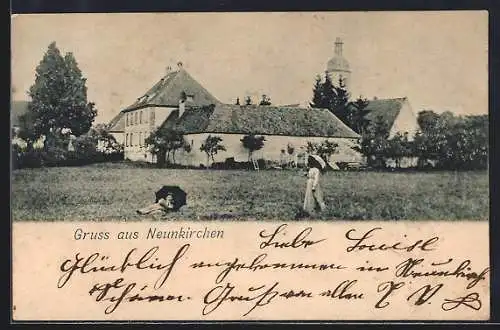 Gruss aus Neunkirchen.
Liebe Louise
Glücklich angekommen in Neunkirch
Gruß von allen